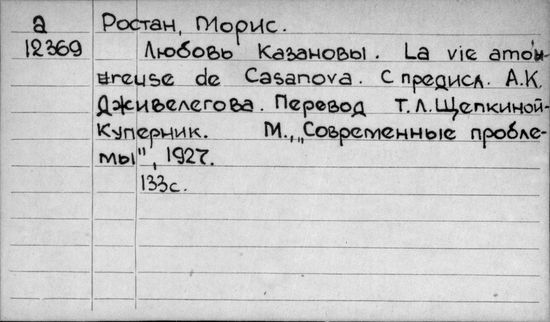 а Ростан, Морис.
12369 Любовь Казановы. La vie amou-
ureuse de Casanova. С предисл. А.К.
Дживелегова. Перевод Т.Л.Щепкиной-
Куперник. М., „Современные пробле-
мы", 1927.
133с.